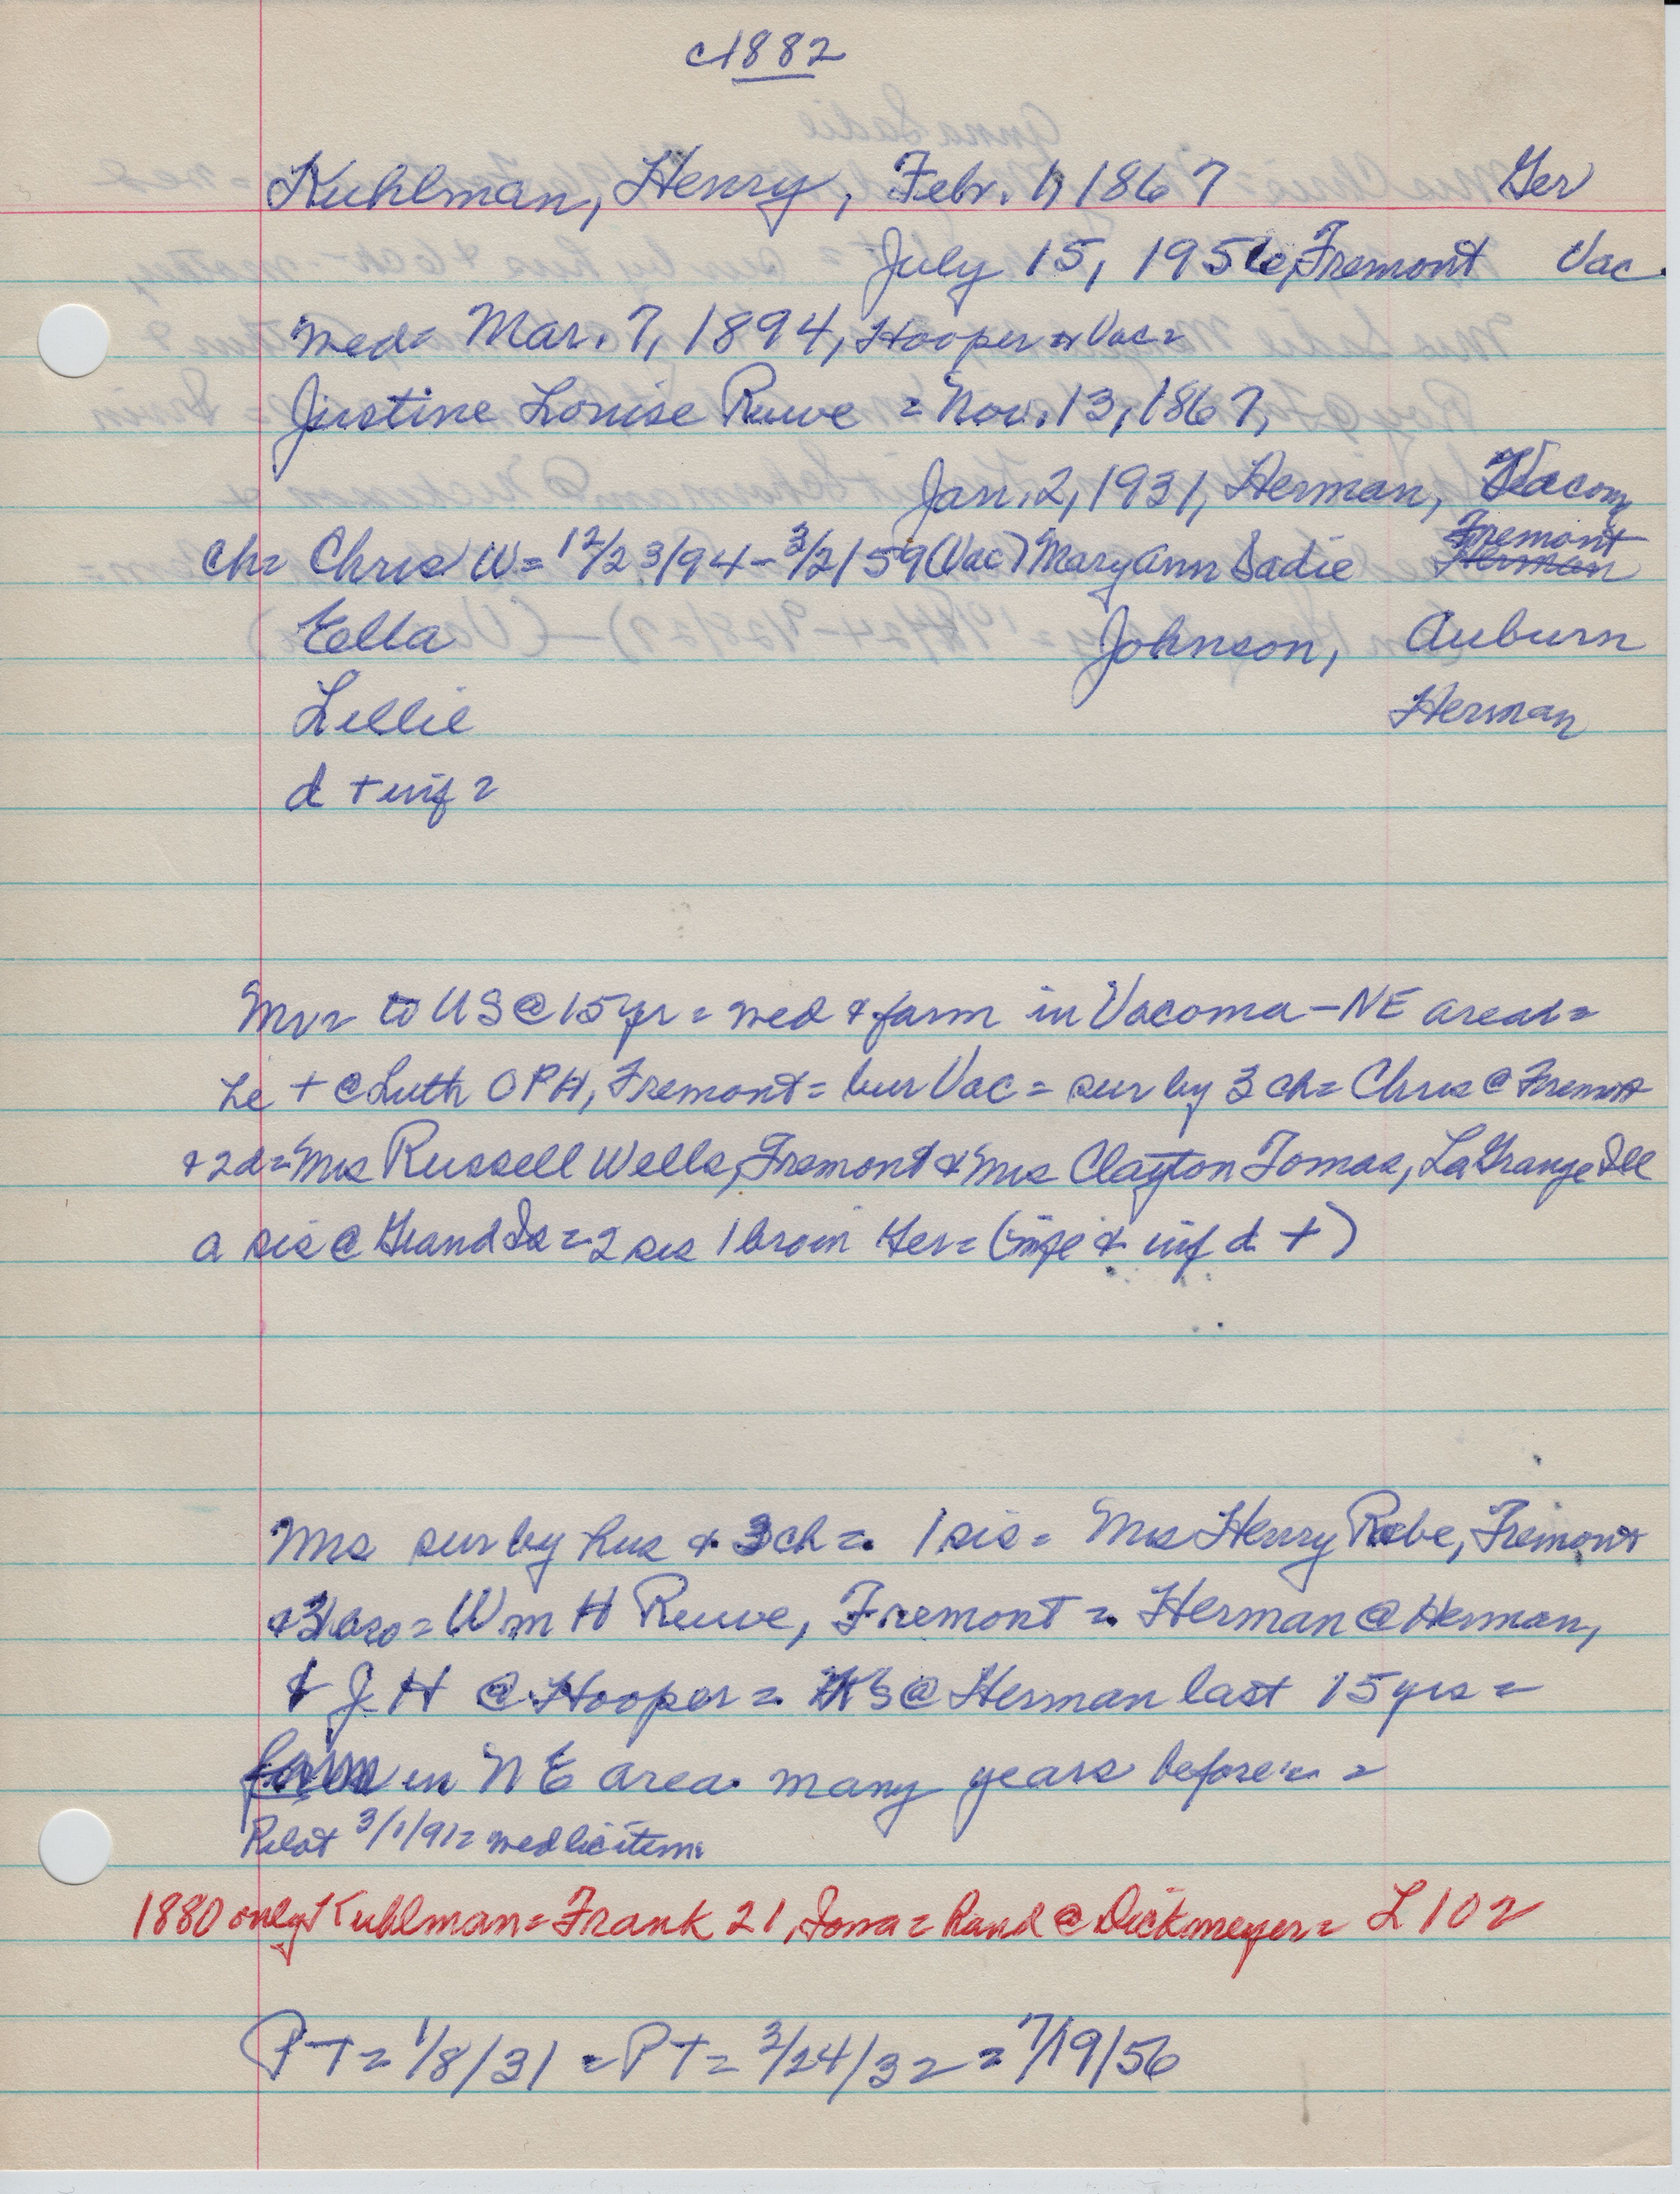 c1882
Kuhlman, Henry, Febr. 1, 1867 Ger
July 15, 1956, Fremont Vac.
med= Mar. 7, 1894, Hooper = Vac=
Justine Louise Ruwe = Nov. 13, 1867,
Jan. 2, 1931, Herman, Vacom
ch= Chris W= 12/23/94 - 3/2/59 (Vac) Mary Ann Sadie Fremont Herman
Ella Johnson, Auburn
Lillie Herman
d + inf =
Mv= to US @ 15 yr = med & farm in Vacoma - NE area=
he + @ Luth OPH, Fremont = bur Vac = sur by 3 ch= Chris @ Fremont
+ 2d= Mrs Russell Wells, Fremont & Mrs Clayton Tomas, LaGrange Ill
a sis @ Grand Is = 2 sis 1 bro in Ger= (wife & inf d +)
Mrs sur by hus & 3 ch = 1 sis = Mrs Henry Rabe, Fremont
& 3 bro = Wm H Ruwe, Fremont = Herman @ Herman,
& J H @ Hooper = K's @ Herman last 15 yrs =
farm in NE area many years before =
Pilot 3/1/91= med lic item
1880 only Kuhlman= Frank 21, Iowa = hand @ Dickmeyer= L 102
PT = 1/8/31 = PT = 3/24/32 = 7/19/56